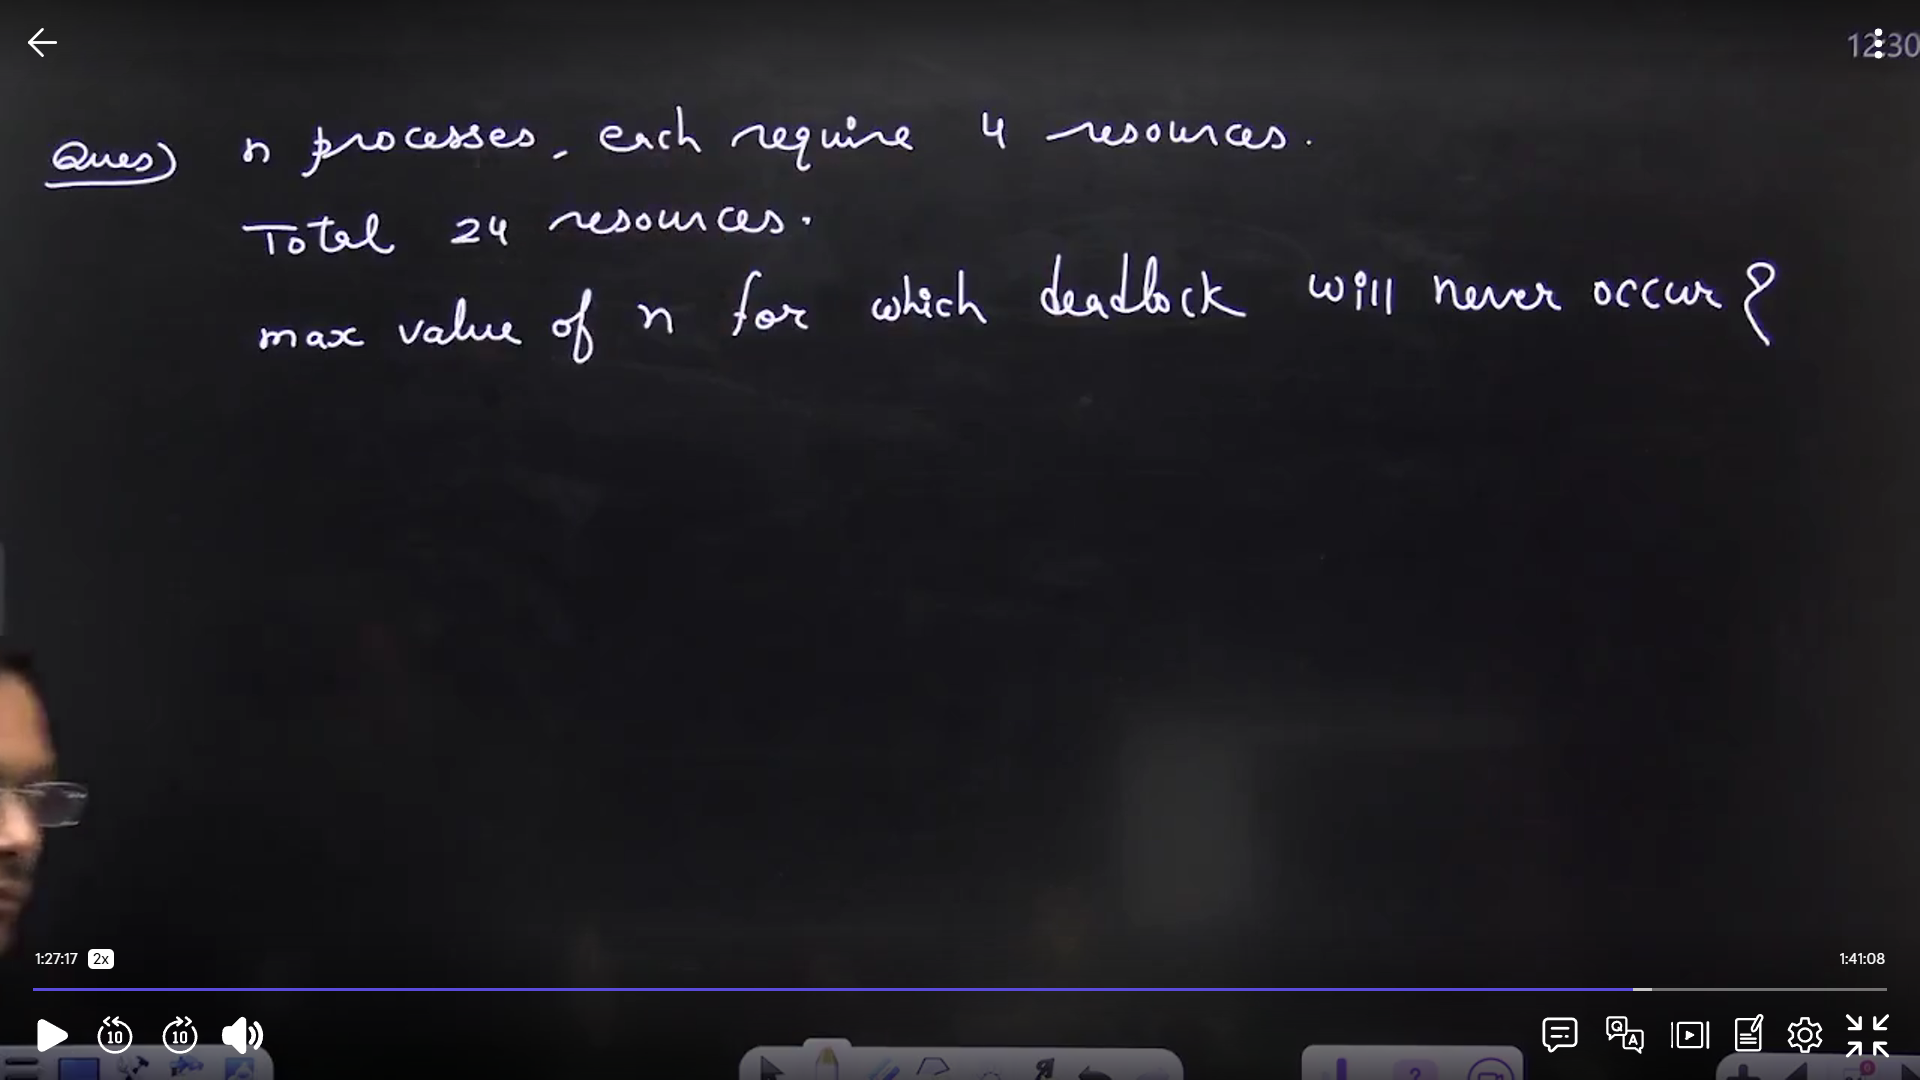 12:30
Ques) n processes, each require 4 resources.
Total 24 resources.
max value of n for which deadlock will never occur ?
1:27:17 2x 1:41:08
10 10
Q A